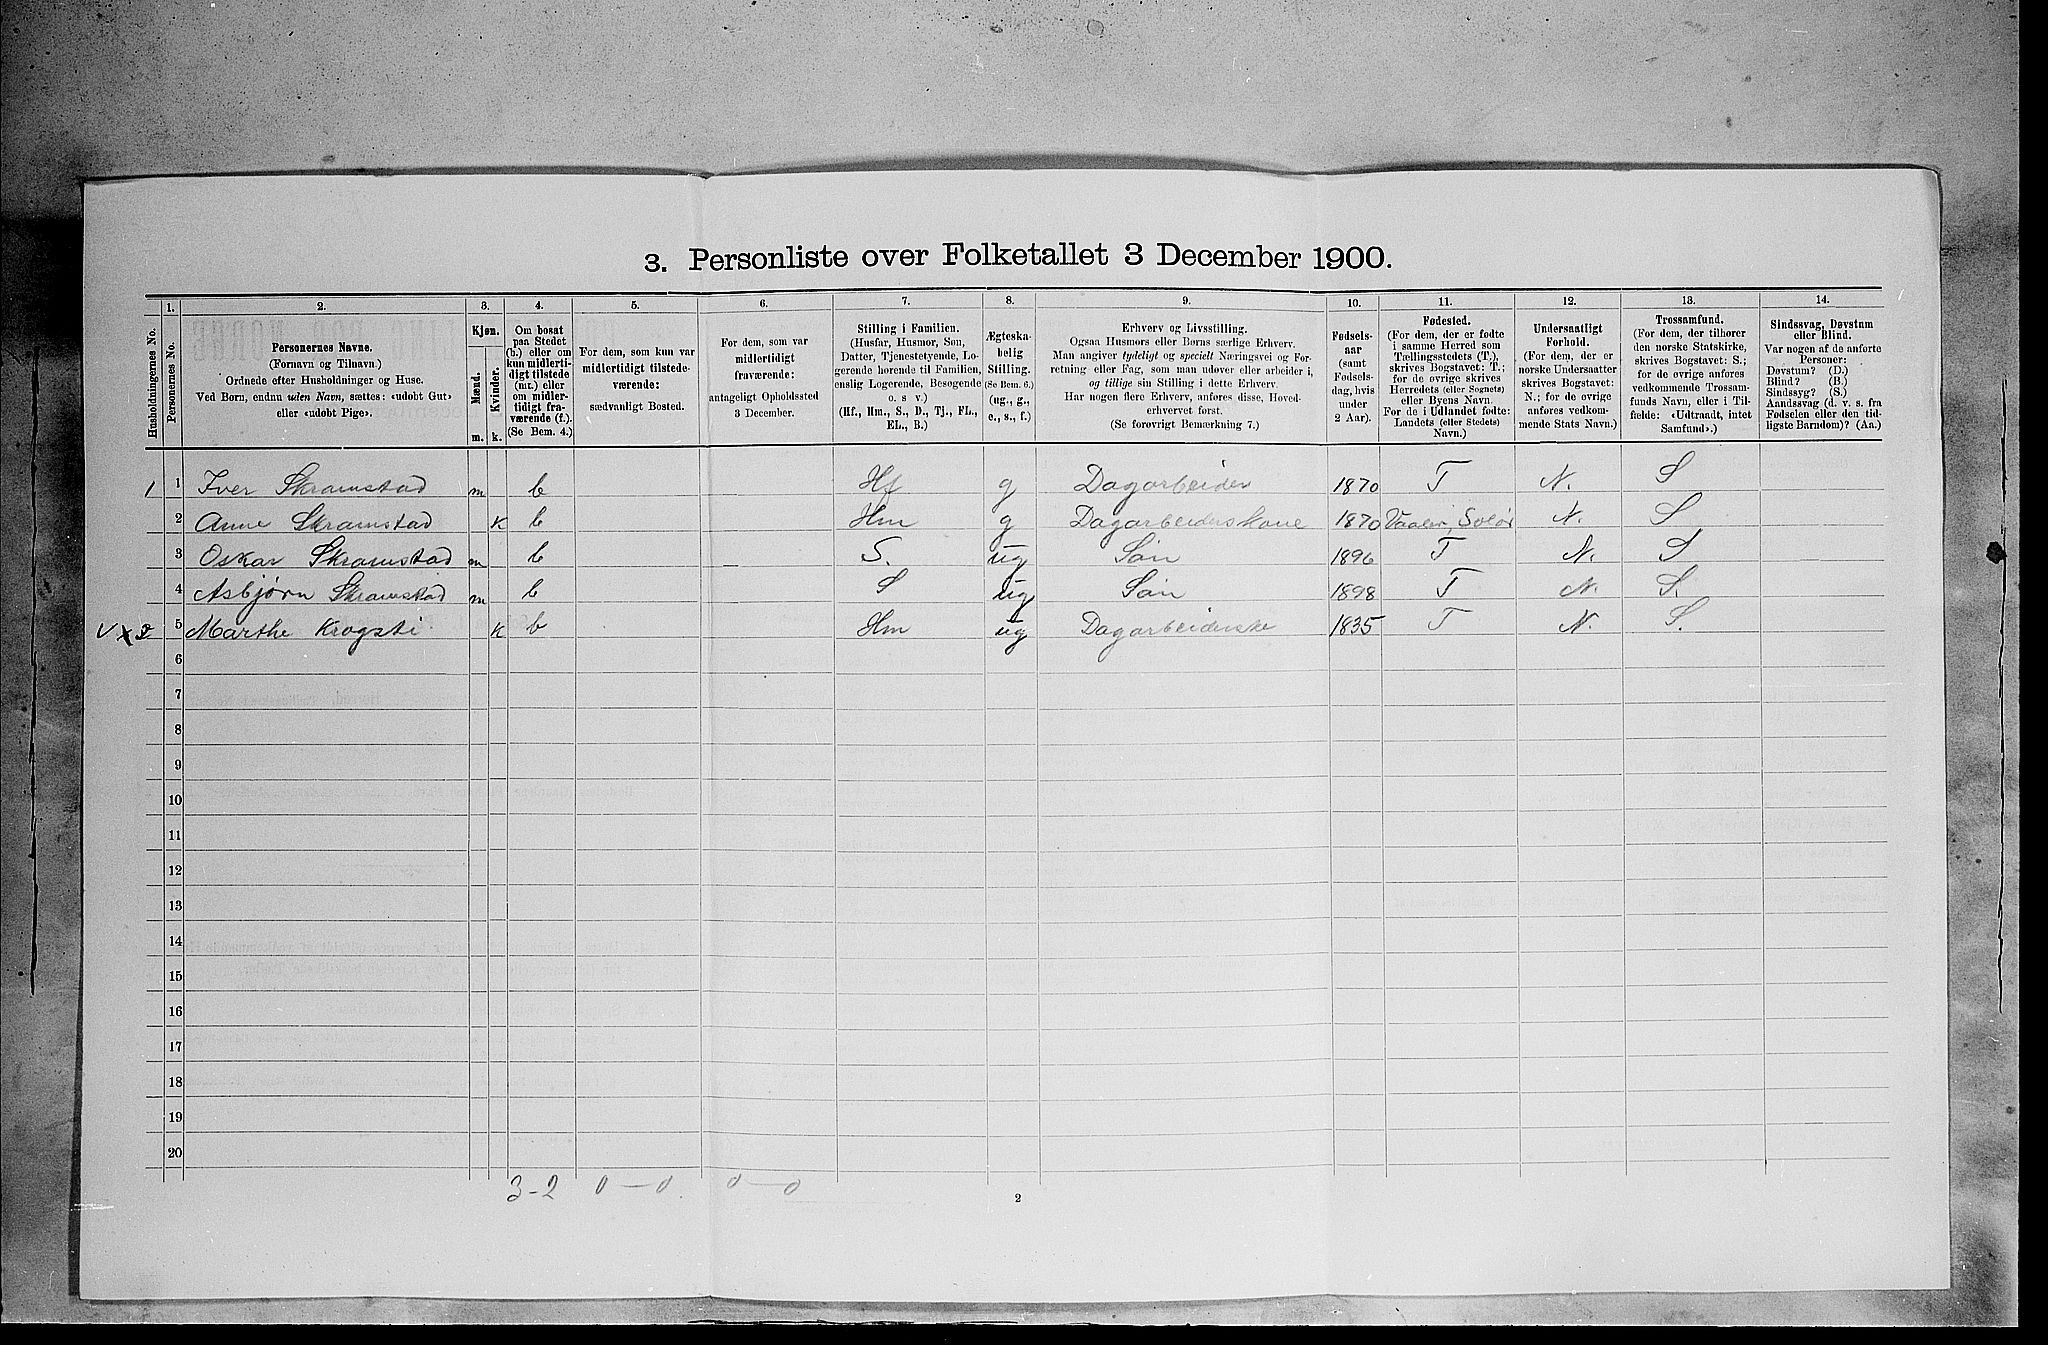 3. Personliste over Folketallet 3 December 1900.
Husholdningernes No.
1. Personernes No.
2. Personernes Navne.
(Fornavn og Tilnavn.)
Ordnede efter Husholdninger og Huse.
Ved Børn, endnu uden Navn, sættes: «udøbt Gut»
eller «udøbt Pige».
3. Kjøn.
Mænd. m.
Kvinder. k.
4. Om bosat
paa Stedet
(b.) eller om
kun midlerti-
digt tilstede
(mt.) eller
om midler-
tidigt fra-
værende (f.).
(Se Bem. 4.)
5. For dem, som kun var
midlertidigt tilstede-
værende:
sædvanligt Bosted.
6. For dem, som var
midlertidigt
fraværende:
antageligt Opholdssted
3 December.
7. Stilling i Familien.
(Husfar, Husmor, Søn,
Datter, Tjenestetyende, Lo-
gerende hørende til Familien,
enslig Logerende, Besøgende
o. s v.)
(Hf., Hm., S., D., Tj., FL.,
EL., B.)
8. Ægteska-
belig
Stilling.
(Se Bem. 6.)
(ug., g.,
e., s., f.)
9. Erhverv og Livsstilling.
Ogsaa Husmors eller Børns særlige Erhverv.
Man angiver tydeligt og specielt Næringsvei og For-
retning eller Fag, som man udøver eller arbeider i,
og tillige sin Stilling i dette Erhverv.
Har nogen flere Erhverv, anføres disse, Hoved-
erhvervet først.
(Se forøvrigt Bemærkning 7.)
10. Fødsels-
aar
(samt
Fødsels-
dag, hvis
under
2 Aar).
11. Fødested.
(For dem, der er fødte
i samme Herred som
Tællingsstedets (T.),
skrives Bogstavet: T.;
for de øvrige skrives
Herredets (eller Sognets)
eller Byens Navn.
For de i Udlandet fødte:
Landets (eller Stedets)
Navn.)
12. Undersaatligt
Forhold.
(For dem, der er
norske Undersaatter
skrives Bogstavet:
N.; for de øvrige
anføres vedkom-
mende Stats Navn.)
13. Trossamfund.
(For dem, der tilhører
den norske Statskirke,
skrives Bogstavet: S.;
for de øvrige anføres
vedkommende Trossam-
funds Navn, eller i Til-
fælde: «Udtraadt, intet
Samfund».)
14. Sindssvag, Døvstum
eller Blind.
Var nogen af de anførte
Personer:
Døvstum? (D.)
Blind? (B.)
Sindssyg? (S.)
Aandssvag (d. v. s. fra
Fødselen eller den tid-
ligste Barndom)? (Aa.)
1 1 Iver Skramstad m b Hf g Dagarbeider 1870 T N. S
2 Anne Skramstad k b Hm g Dagarbeiderskone 1870 Vaaler, Solør N. S
3 Oskar Skramstad m b S. ug Søn 1896 T N. S
4 Asbjørn Skramstad m b S ug Søn 1898 T N. S.
V x 2 5 Marthe Krogsti k b Hm ug Dagarbeiderske 1835 T N. S.
6
7
8
9
10
11
12
13
14
15
16
17
18
19
20
3-2 0-0. 0-0
2